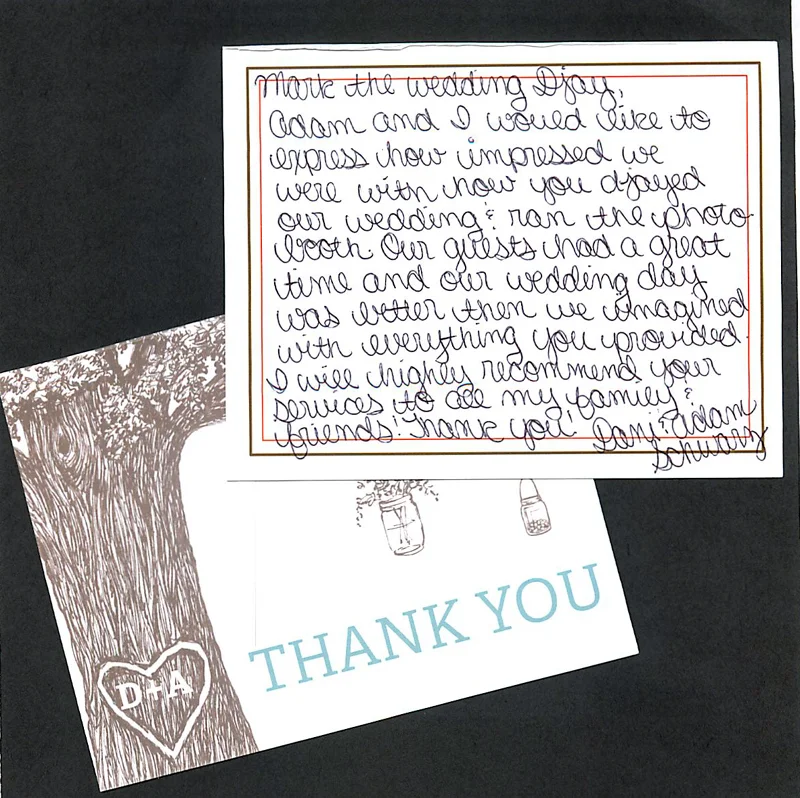 Mark the wedding Djay,
Adam and I would like to
express how impressed we
were with how you djayed
our wedding & ran the photo
booth. Our guests had a great
time and our wedding day
was better then we imagined
with everything you provided.
I will highly recommend your
services to all my family &
friends! Thank you! Dani & Adam
Schwarz
THANK YOU
D+A